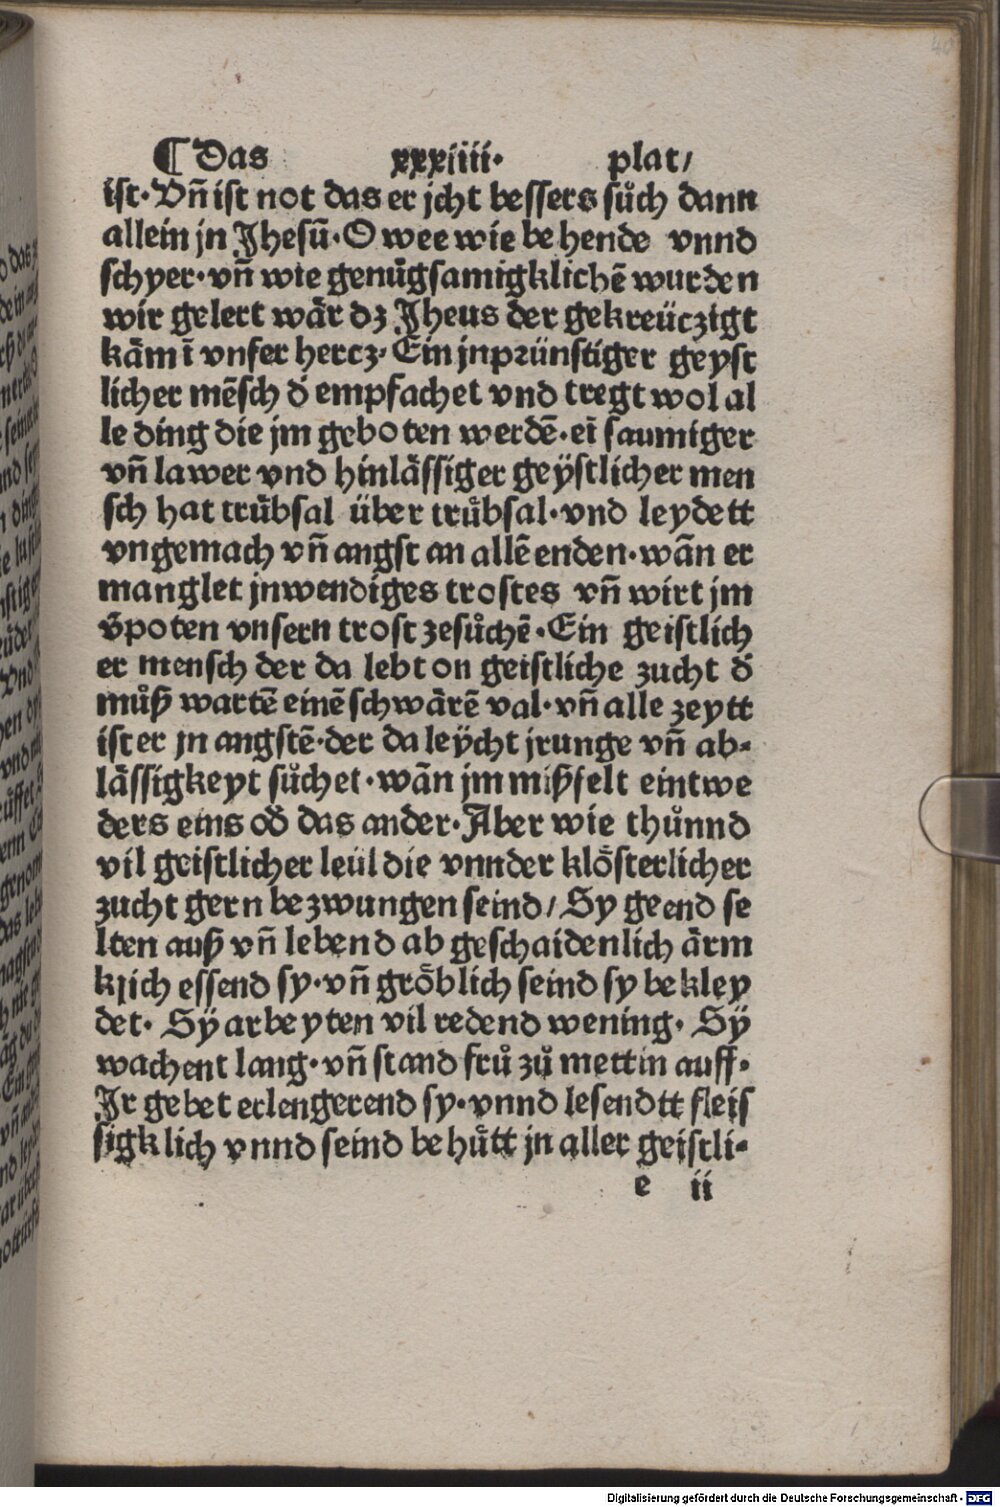 ¶ Das xxxiiii· plat/
ist· Vn̄ ist not das er jcht bessers sůch dann
allein jn Jhesū· O wee wie behende vnnd
schyer· vn̄ wie genůgsamigklichē wurden
wir gelert wår dz Jheus der gekreüczigt
kåm ī vnser hercz· Ein jnprünstiger geyst
licher mēsch d̄ empfachet vnd tregt wol al
le ding die jm geboten werdē· eī saumiger
vn̄ lawer vnd hinlåssiger geÿstlicher men
sch hat trůbsal über trůbsal· vnd leydett
vngemach vn̄ angst an allē enden· wān er
manglet jnwendiges trostes vn̄ wirt jm
v̄poten vnsern trost zesůchē· Ein geistlich
er mensch der da lebt on geistliche zucht d̄
můß wartē einē schwårē val· vn̄ alle zeytt
ist er jn angstē· der da leÿcht jrunge vn̄ ab-
låssigkeyt sůchet· wān jm mißfelt eintwe
ders eins od̄ das ander· Aber wie thůnnd
vil geistlicher leül die vnnder klösterlicher
zucht gern bezwungen seind/ Sy geend se
lten auß vn̄ lebend abgeschaidenlich årm
kjich essend sy· vn̄ gröblich seind sy bekley
det· Sÿ arbeyten vil redend wening· Sÿ
wachent lang· vn̄ stand frů zů mettin auff·
Jr gebet erlengerend sy· vnnd lesendtt fleis
sigklich vnnd seind behůtt jn aller geistli-
e ii
40
Digitalisierung gefördert durch die Deutsche Forschungsgemeinschaft - DFG